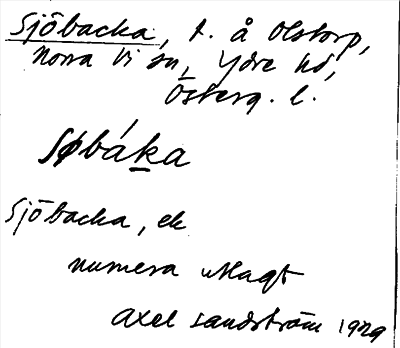 Sjöbacka, t. å Olstorp,
Norra Vi sn, Ydre hd,
Österg. l.
Søbáka
Sjöbacka, ek
numera utlagt
Axel Landström 1929